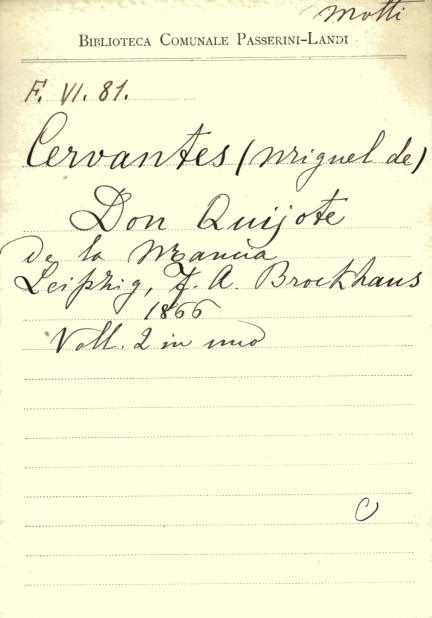 Motti
BIBLIOTECA COMUNALE PASSERINI-LANDI
F. VI. 81.
Cervantes (Miguel de)
Don Quijote
de la Mancia
Leipzig, F. A. Brockhaus
1866
Voll. 2 in uno
C